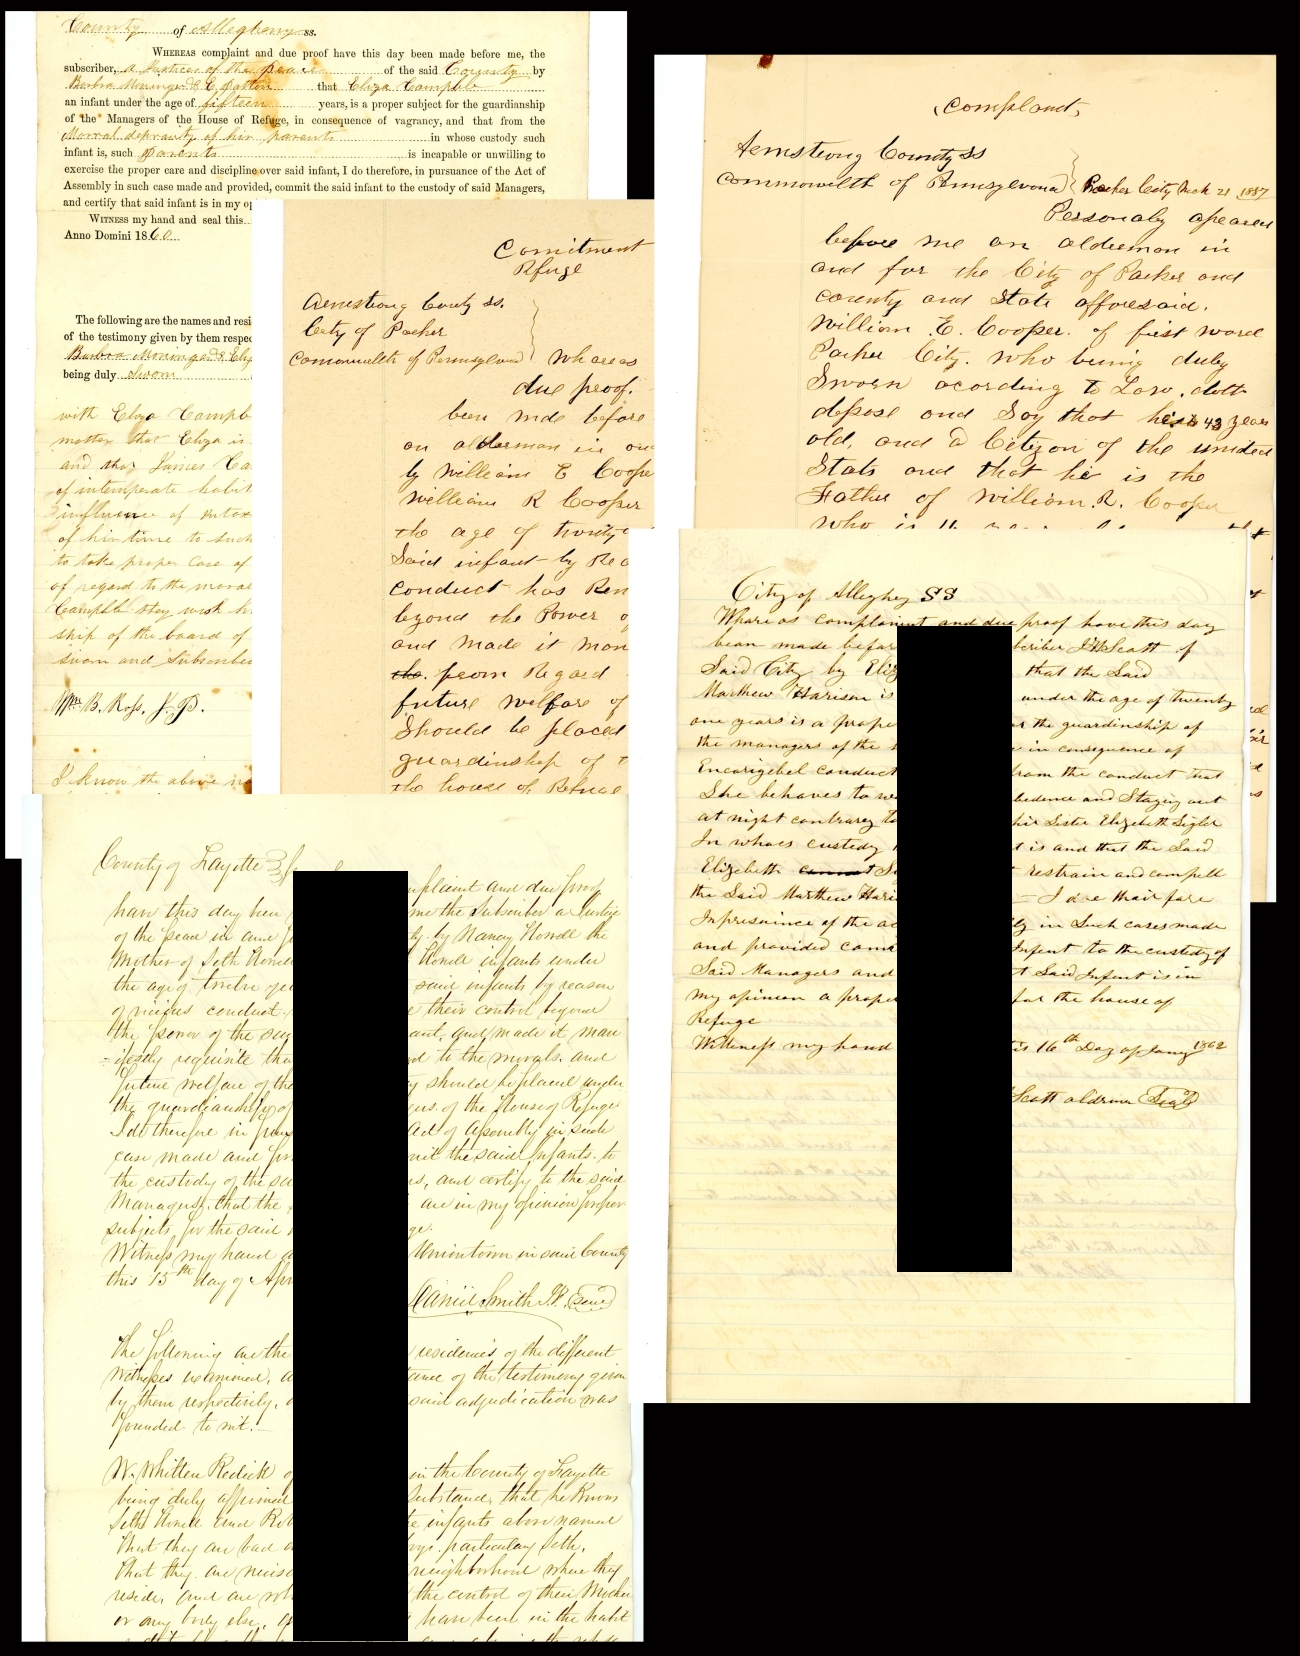 County of Allegheny ss.
WHEREAS complaint and due proof have this day been made before me, the
subscriber, a Justice of the peace of the said County by
Barbra Moninger & E. Patton that Eliza Campble
an infant under the age of fifteen years, is a proper subject for the guardianship
of the Managers of the House of Refuge, in consequence of vagrancy, and that from the
Morral depravity of hir parents in whose custody such
infant is, such parents is incapable or unwilling to
exercise the proper care and discipline over said infant, I do therefore, in pursuance of the Act of
Assembly in such case made and provided, commit the said infant to the custody of said Managers,
and certify that said infant is in my op
WITNESS my hand and seal this
Anno Domini 1860
The following are the names and resi
of the testimony given by them respec
Barbra Moninger & Eliz
being duly Sworn
with Eliza Campb
matter that Eliza is
and that James Ca
of intemperate habit
influence of intox
of hir time to such
to take proper care of
of regard to the moral
Campble they wish h
ship of the board of
Sworn and Subscribe
Wm B. Ross, J. P.
I know the above na
Comitment
Refuge
Armstrong County SS.
City of Parker
Comonwelth of Pennsylvena
Whareas
due proof.
been made before
an alderman in an
by William E Coope
William R Cooper
the age of twenty
Said infant by Rea
conduct has Ren
beyond the Power o
and made it man
the. from Regard
future welfare of
Should be placed
guardinship of t
the house of Refuge
Complant
Armstrong County SS
Commonwelth of Pennsylvena
Parker City Mch 21 1887
Personaly apeared
before me an alderman in
and for the City of Parker and
county and State afforesaid.
William E. Cooper. of first ward
Parker City. who being duly
Sworn acording to Law. doth
depose and Say that he is 43 years
old. and a Citizen of the united
Stats and that he is the
Father of William. R. Cooper
who is
City of Allegheny SS
Whare as complaint and due proof have this day
bean made befar bcriber J H Scott of
Said City by Eliz that the Said
Marthew Harison is under the age of twenty
one years is a prope r the guardinship of
the managers of the in consequence of
Encorigebel conduct from the conduct that
She behaves to w bedence and Staying out
at night contrarey to hir Sister Elizebeth Sigler
In whoes custedy t is and that the Said
Elizebeth cannot S restrain and compell
the Said Marthew Hari I doe thairfare
In presuince of the a ly in Such cases made
and provided com Infent to the custedy of
Said Managers and t Said Infent is in
my opinion a prope for the house of
Refuge
Wittness my hand is 16th Day of Jany 1862
Scott aldrman Seal
County of Fayette
mplaint and due proof
have this day been me the Subscriber a Justice
of the peace in and f ty. by Nancy Howell the
Mother of Seth Howell Howell infants under
the age of twelve ye said infants by reason
of vicious conduct. e their control beyond
the power of the aant, and made it man
=ifestly requisite tha d to the morals and
future welfare of the y should be placed under
the guardianship of ers. of the House of Refuge
I do therefore in purs Act of Assembly in such
case made and pro mit the said Infants. to
the custody of the sa s, and certify to the said
Managers, that the are in my opinion proper
subjects for the said ge.
Witness my hand a Uniontown in said County
this 15th day of Apr
Daniel Smith J.P. Seal
The following are the residences of the different
witnesses examined, a tance of the testimony given
by them respectively, said adjudication was
founded to wit.
W. Whitten Redick o in the County of Fayette
being duly affirmed Substance, that he knows
Seth Howell and Rob e infants above named
That they are bad oys. particulary Seth,
That they are neighborhood where they
reside, and are the control of their Mother
or any body else, have been in the habit